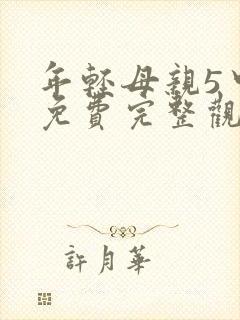 年轻母親5中
免費完整觀
許月華